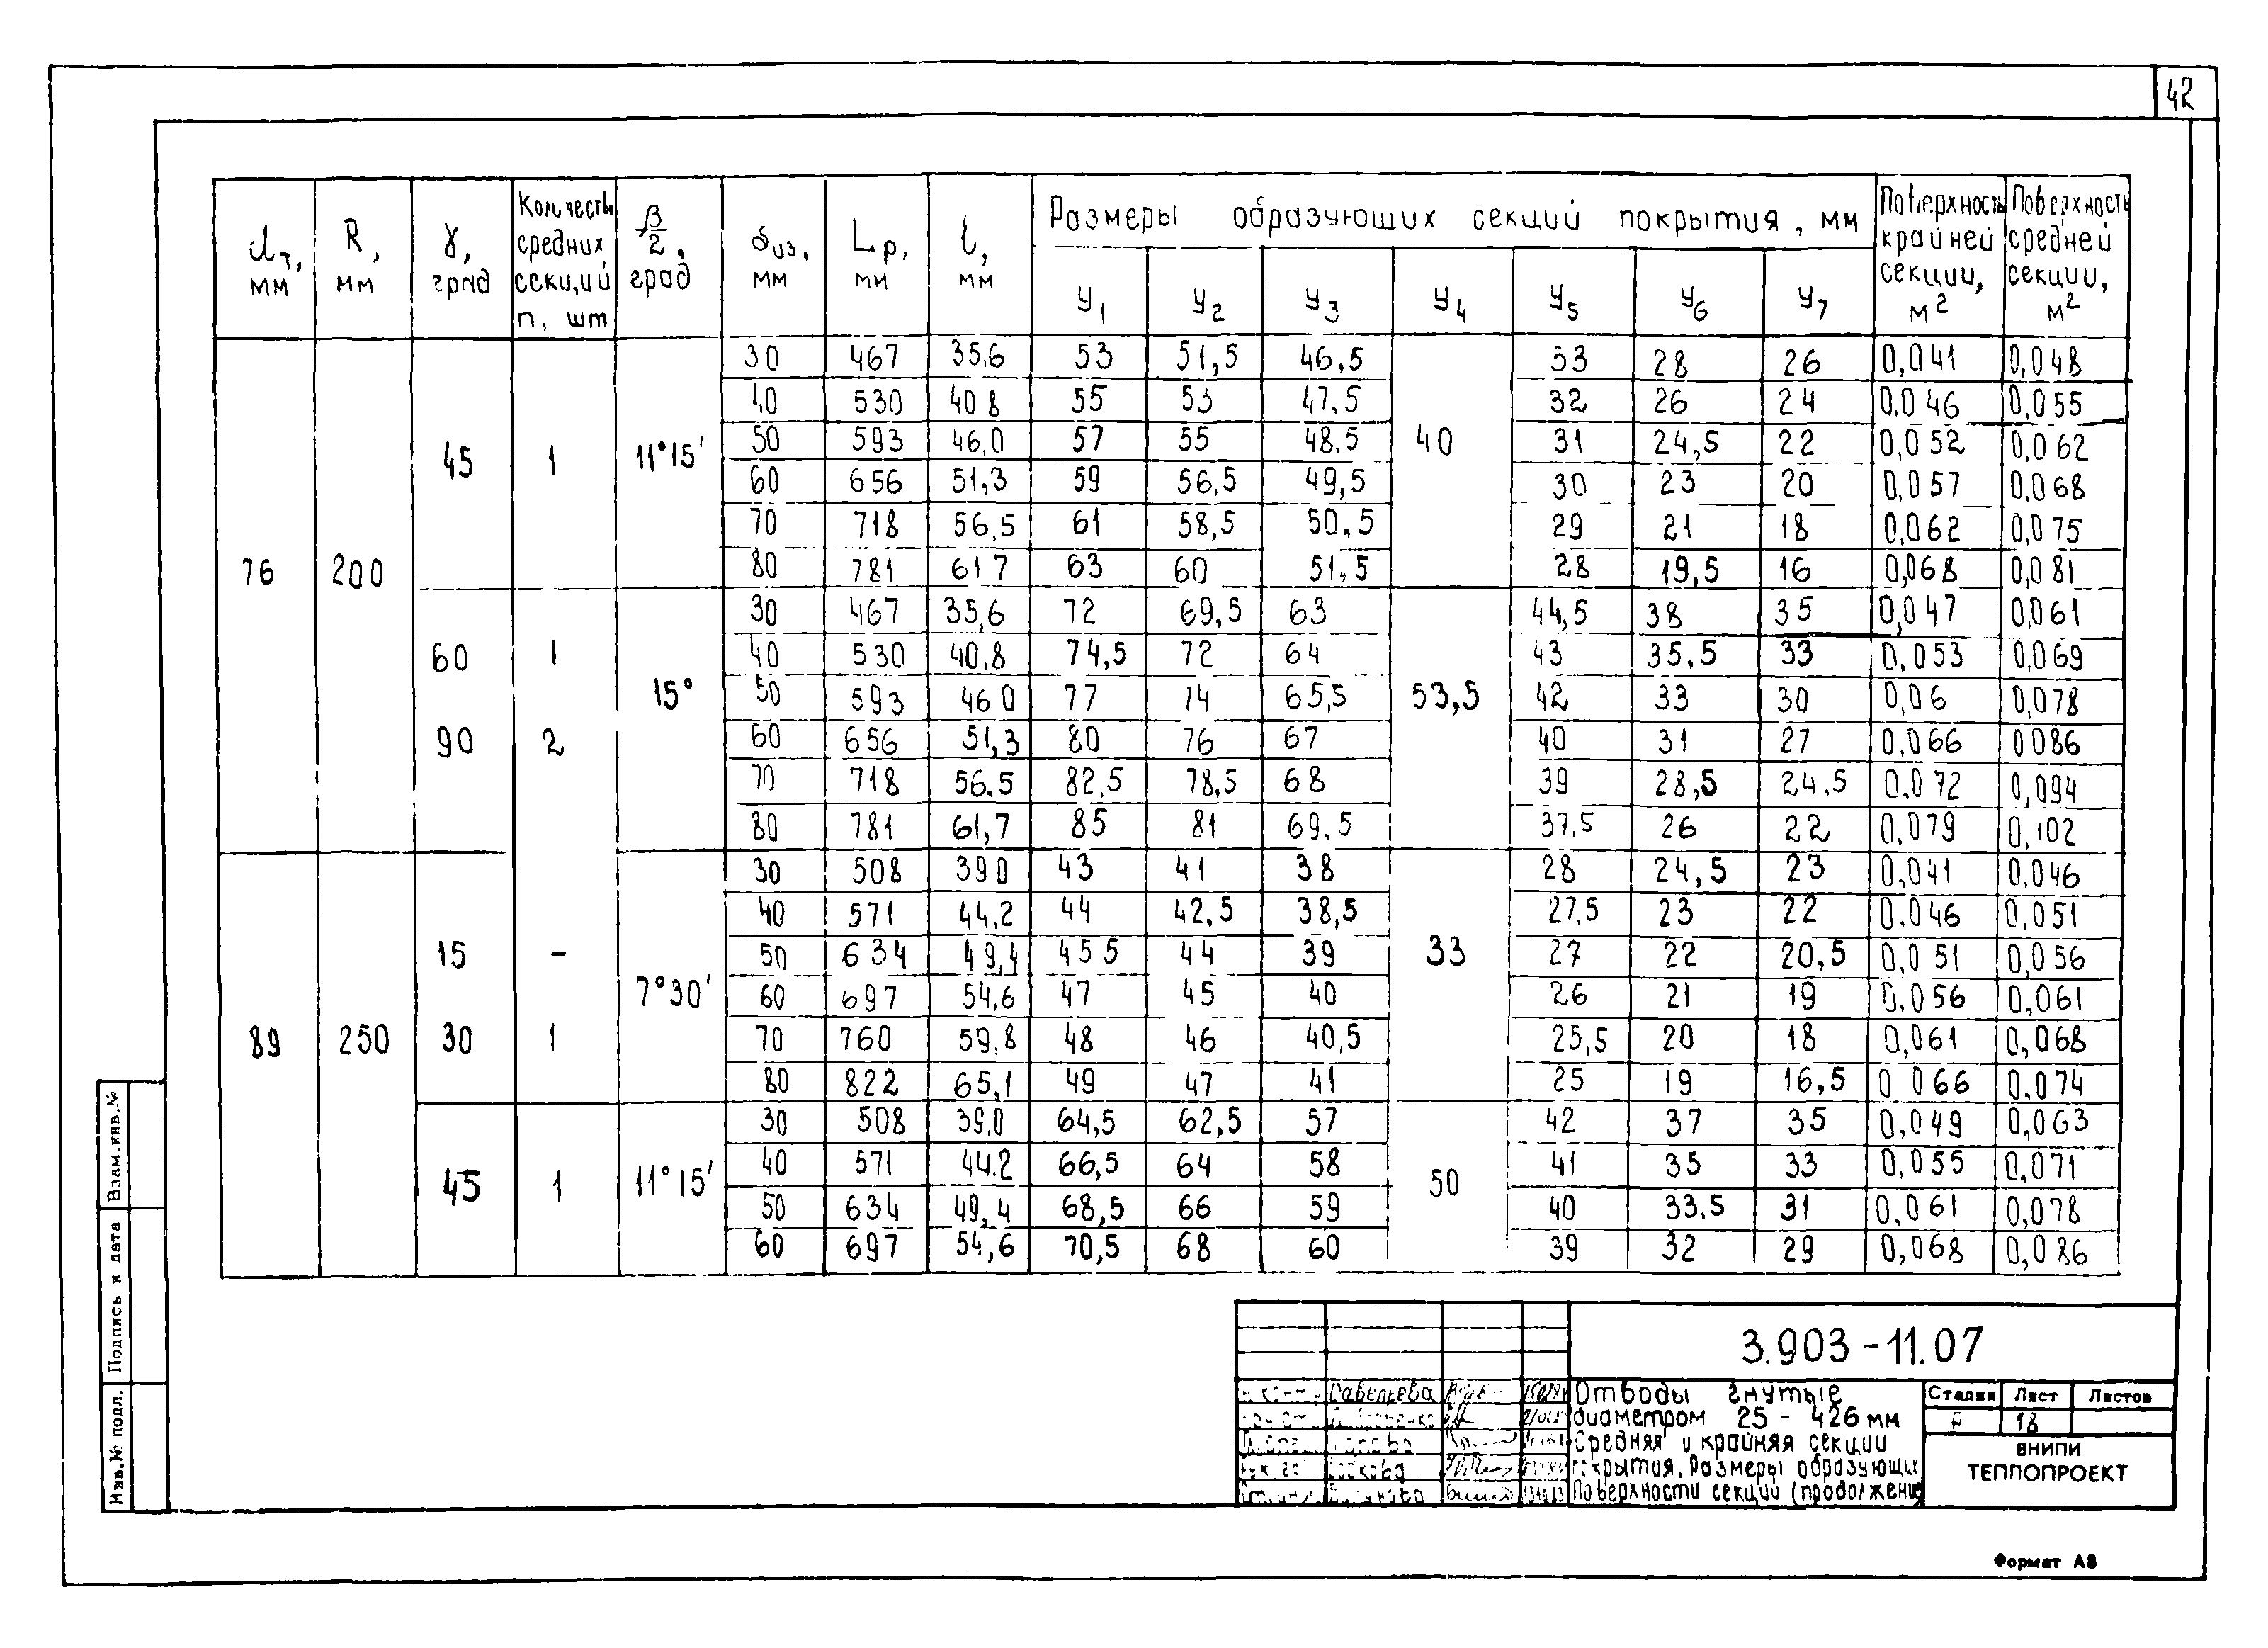 42
dт, мм R, мм γ, град Количество средних секций n, шт β/2, град δиз, мм Lр, мм l, мм Размеры образующих секций покрытия, мм Поверхность крайней секции, м² Поверхность средней секции, м²
y1 y2 y3 y4 y5 y6 y7
76 200
45 1 11°15' 40
30 467 35,6 53 51,5 46,5 33 28 26 0,041 0,048
40 530 40 8 55 53 47,5 32 26 24 0,046 0,055
50 593 46,0 57 55 48,5 31 24,5 22 0,052 0,062
60 656 51,3 59 56,5 49,5 30 23 20 0,057 0,068
70 718 56,5 61 58,5 50,5 29 21 18 0,062 0,075
80 781 61 7 63 60 51,5 28 19,5 16 0,068 0,081
60 1 15° 53,5
90 2
30 467 35,6 72 69,5 63 44,5 38 35 0,047 0,061
40 530 40,8 74,5 72 64 43 35,5 33 0,053 0,069
50 593 46 0 77 74 65,5 42 33 30 0,06 0,078
60 656 51,3 80 76 67 40 31 27 0,066 0086
70 718 56.5 82,5 78,5 68 39 28,5 24,5 0,072 0,094
80 781 61,7 85 81 69,5 37,5 26 22 0,079 0,102
89 250
15 - 7°30' 33
30 1
30 508 39 0 43 41 38 28 24,5 23 0,041 0,046
40 571 44,2 44 42,5 38,5 27,5 23 22 0,046 0,051
50 634 49,4 45 5 44 39 27 22 20,5 0,051 0,056
60 697 54,6 47 45 40 26 21 19 0,056 0,061
70 760 59,8 48 46 40,5 25,5 20 18 0,061 0,068
80 822 65,1 49 47 41 25 19 16,5 0 066 0,074
45 1 11°15' 50
30 508 39,0 64,5 62,5 57 42 37 35 0,049 0,063
40 571 44.2 66,5 64 58 41 35 33 0,055 0,071
50 634 49,4 68,5 66 59 40 33,5 31 0,061 0,078
60 697 54,6 70,5 68 60 39 32 29 0,068 0,086
Взам.инв.№
Подпись и дата
Инв.№ подл.
3.903-11.07
Савельева
Отводы гнутые
диаметром 25 - 426 мм
Средняя и крайняя секции
покрытия. Размеры образующих
Поверхности секций (продолжение
Стадия Лист Листов
Р 18
ВНИПИ
ТЕПЛОПРОЕКТ
Формат А3